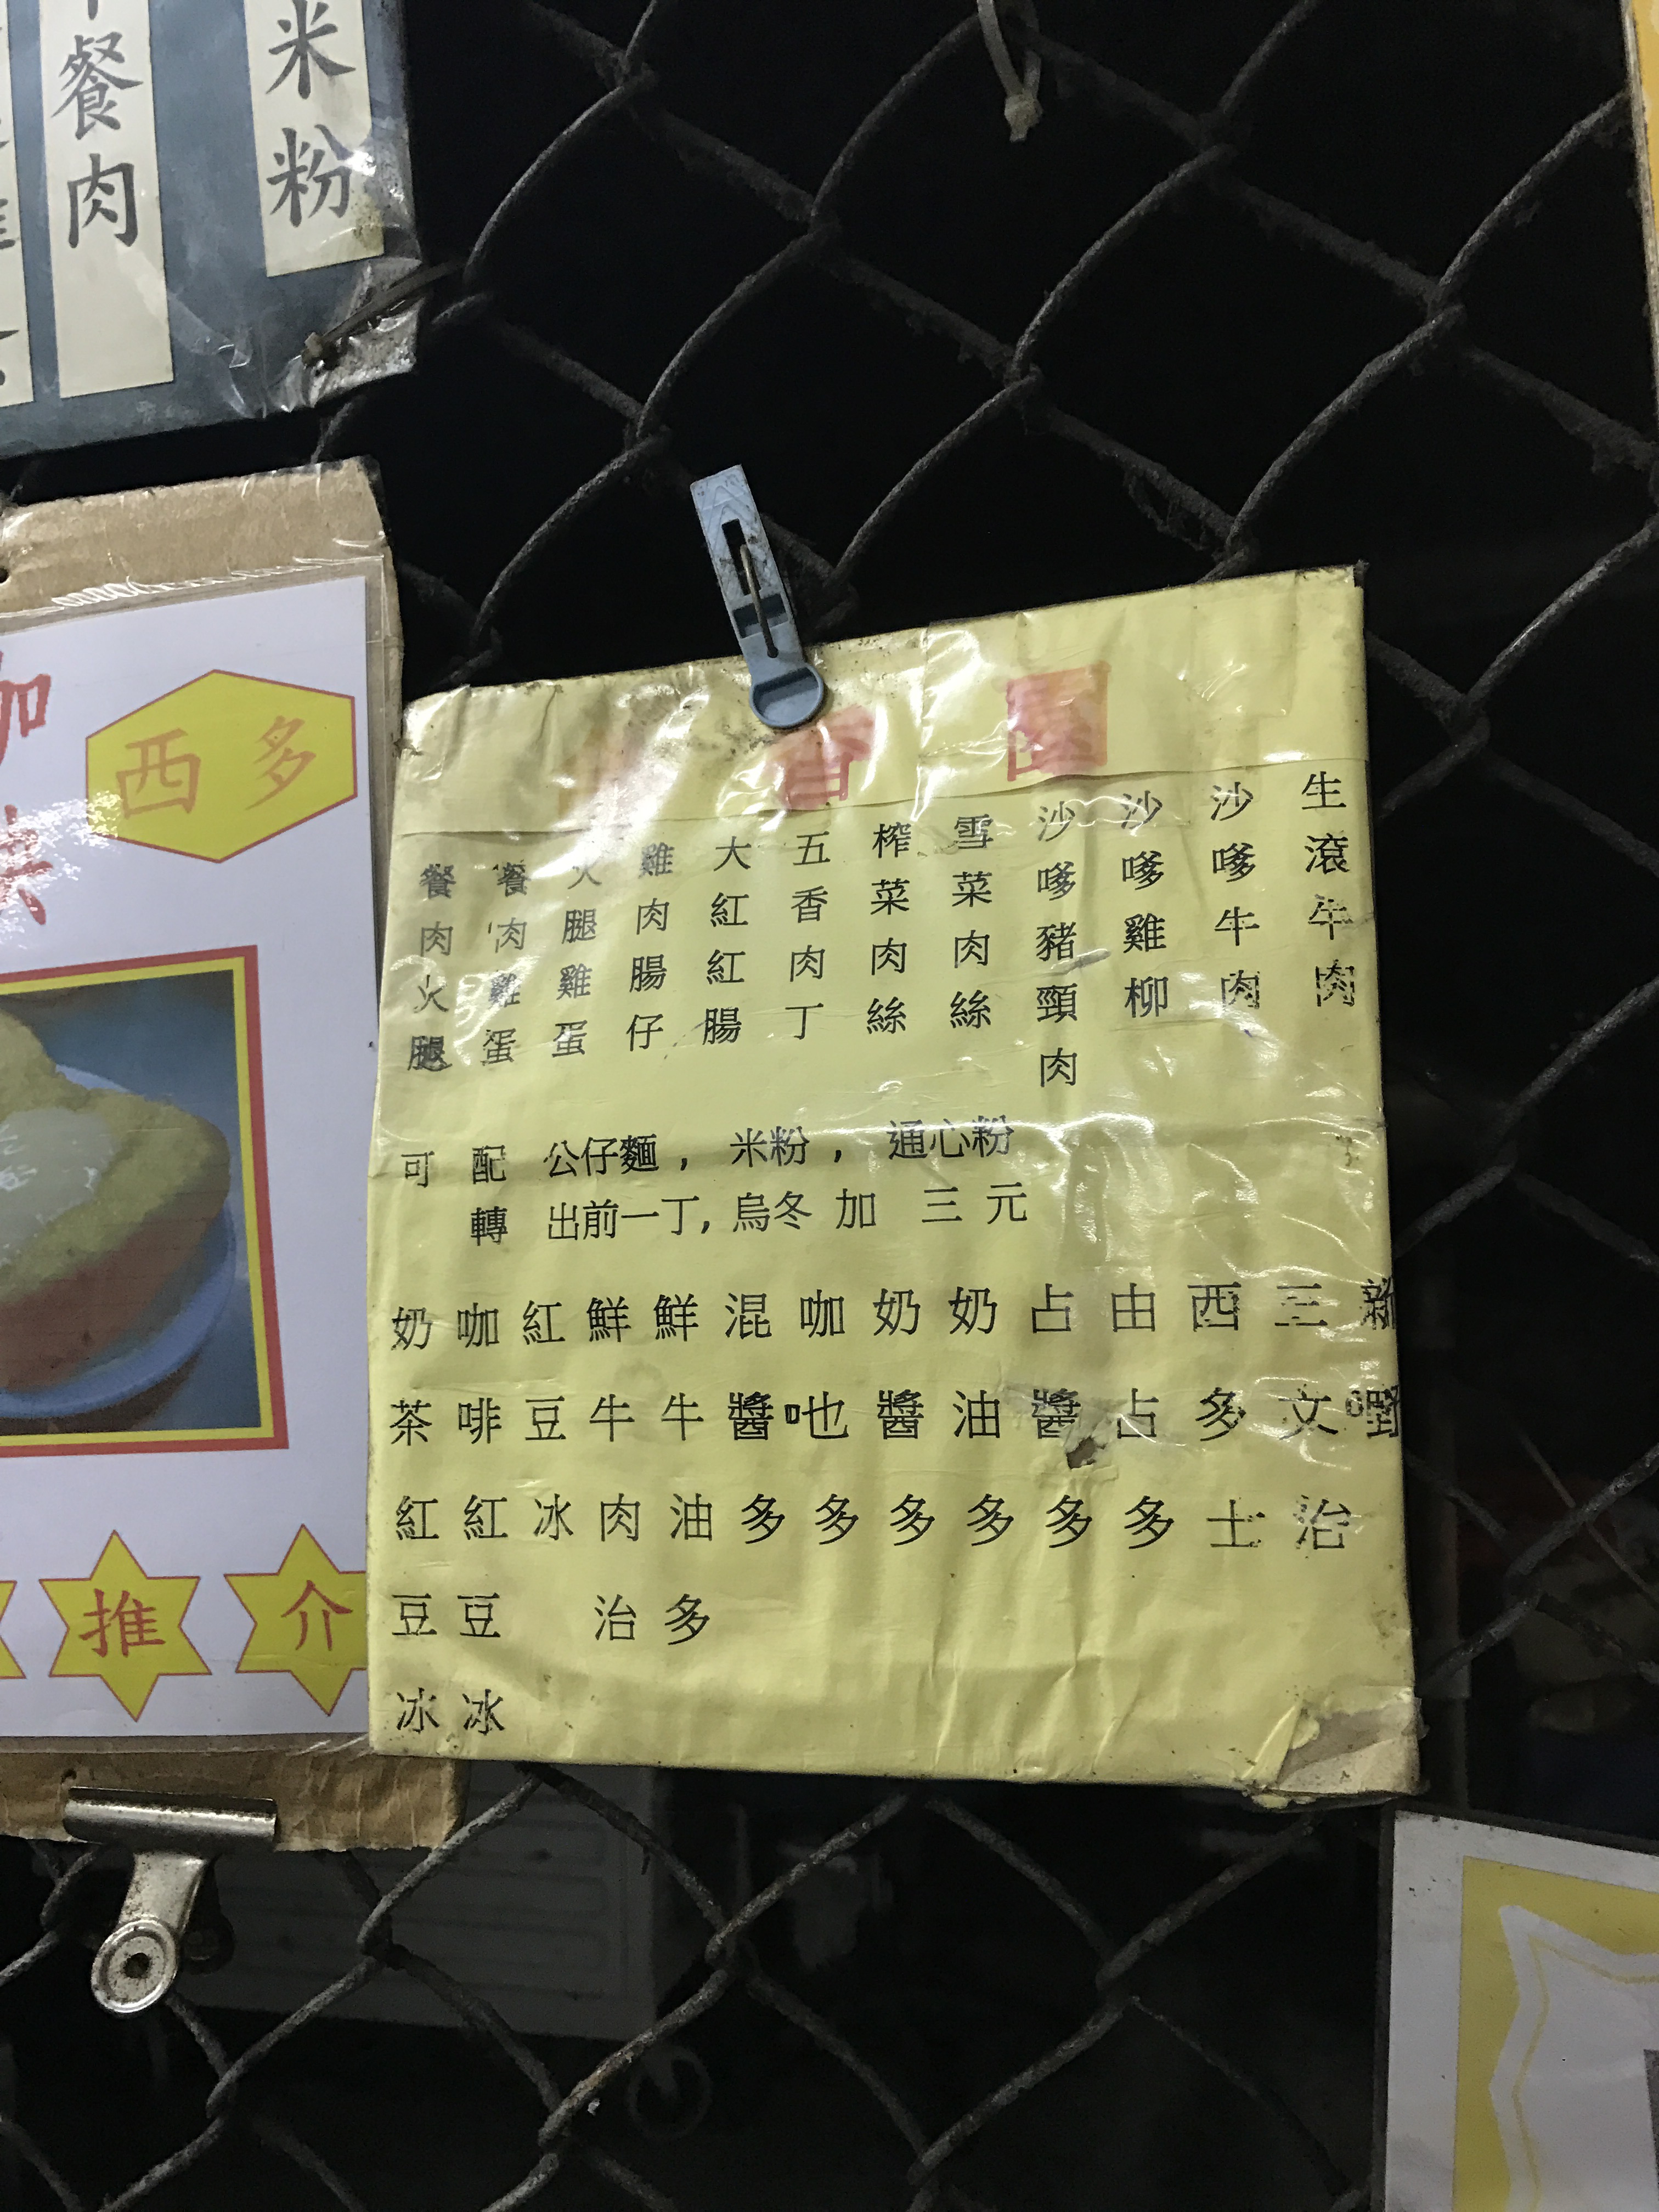 餐肉
米粉
西多
推介
香園
生滾牛肉
沙嗲牛肉
沙嗲雞柳
沙嗲豬頸肉
雪菜肉絲
榨菜肉絲
五香肉丁
大紅紅腸
雞肉腸仔
火腿雞蛋
餐肉雞蛋
餐肉火腿
可配 公仔麵, 米粉, 通心粉
轉 出前一丁, 烏冬 加 三元
新
三文治
西多士
由占多
占醬多
奶油多
奶醬多
咖吔多
混醬多
鮮牛油多
鮮牛肉治
紅豆冰
咖啡紅豆冰
奶茶紅豆冰